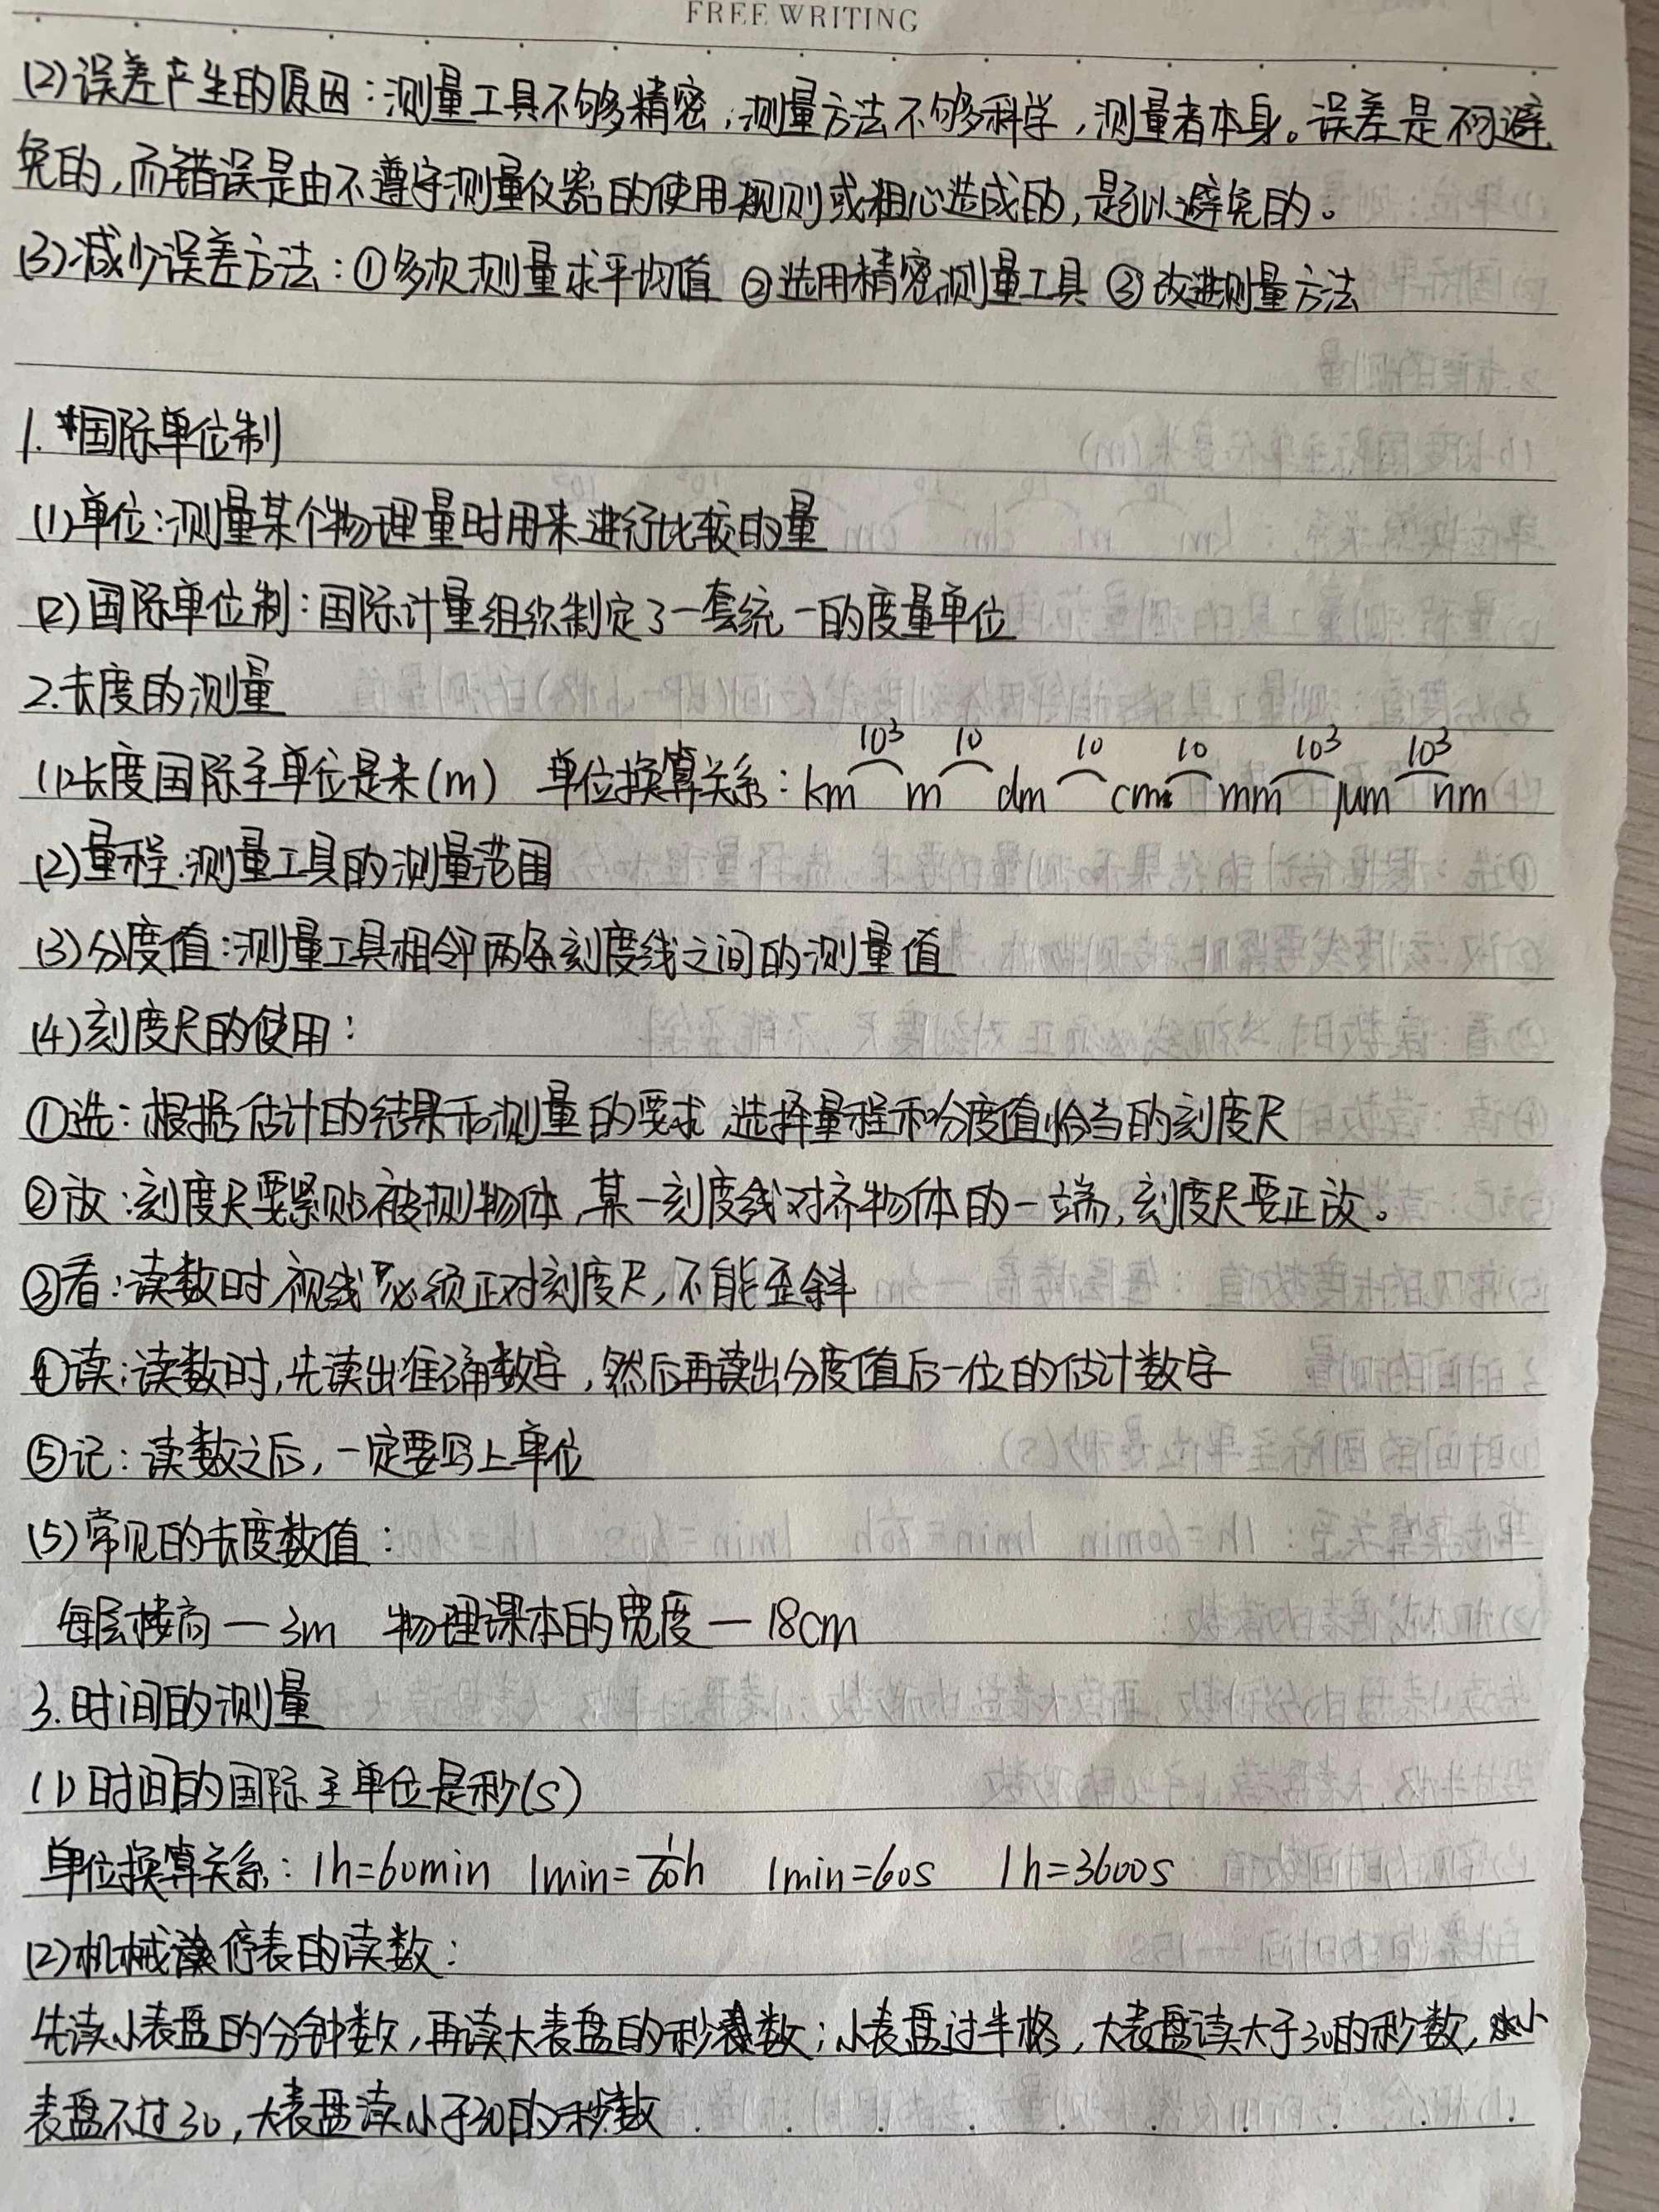 FREE WRITING
(2)误差产生的原因:测量工具不够精密,测量方法不够科学,测量者本身。误差是不可避
免的,而错误是由不遵守测量仪器的使用规则或粗心造成的,是可以避免的。
(3)减少误差方法:①多次测量求平均值 ②选用精密测量工具 ③改进测量方法
1.国际单位制
(1)单位:测量某个物理量时用来进行比较的量
(2)国际单位制:国际计量组织制定了一套统一的度量单位
2.长度的测量
(1)长度国际主单位是米(m) 单位换算关系:km 10³ m 10 dm 10 cm 10 mm 10³ μm 10³ nm
(2)量程:测量工具的测量范围
(3)分度值:测量工具相邻两条刻度线之间的测量值
(4)刻度尺的使用:
①选:根据估计的结果和测量的要求,选择量程和分度值恰当的刻度尺
②放:刻度尺要紧贴被测物体,某一刻度线对齐物体的一端,刻度尺要正放。
③看:读数时,视线必须正对刻度尺,不能歪斜
④读:读数时,先读出准确数字,然后再读出分度值后一位的估计数字
⑤记:读数之后,一定要写上单位
(5)常见的长度数值:
每层楼高—3m 物理课本的宽度—18cm
3.时间的测量
(1)时间的国际主单位是秒(s)
单位换算关系:1h=60min 1min=1/60h 1min=60s 1h=3600s
(2)机械停表的读数:
先读小表盘的分钟数,再读大表盘的秒数;小表盘过半格,大表盘读大于30的秒数,小
表盘不过30,大表盘读小于30的秒数